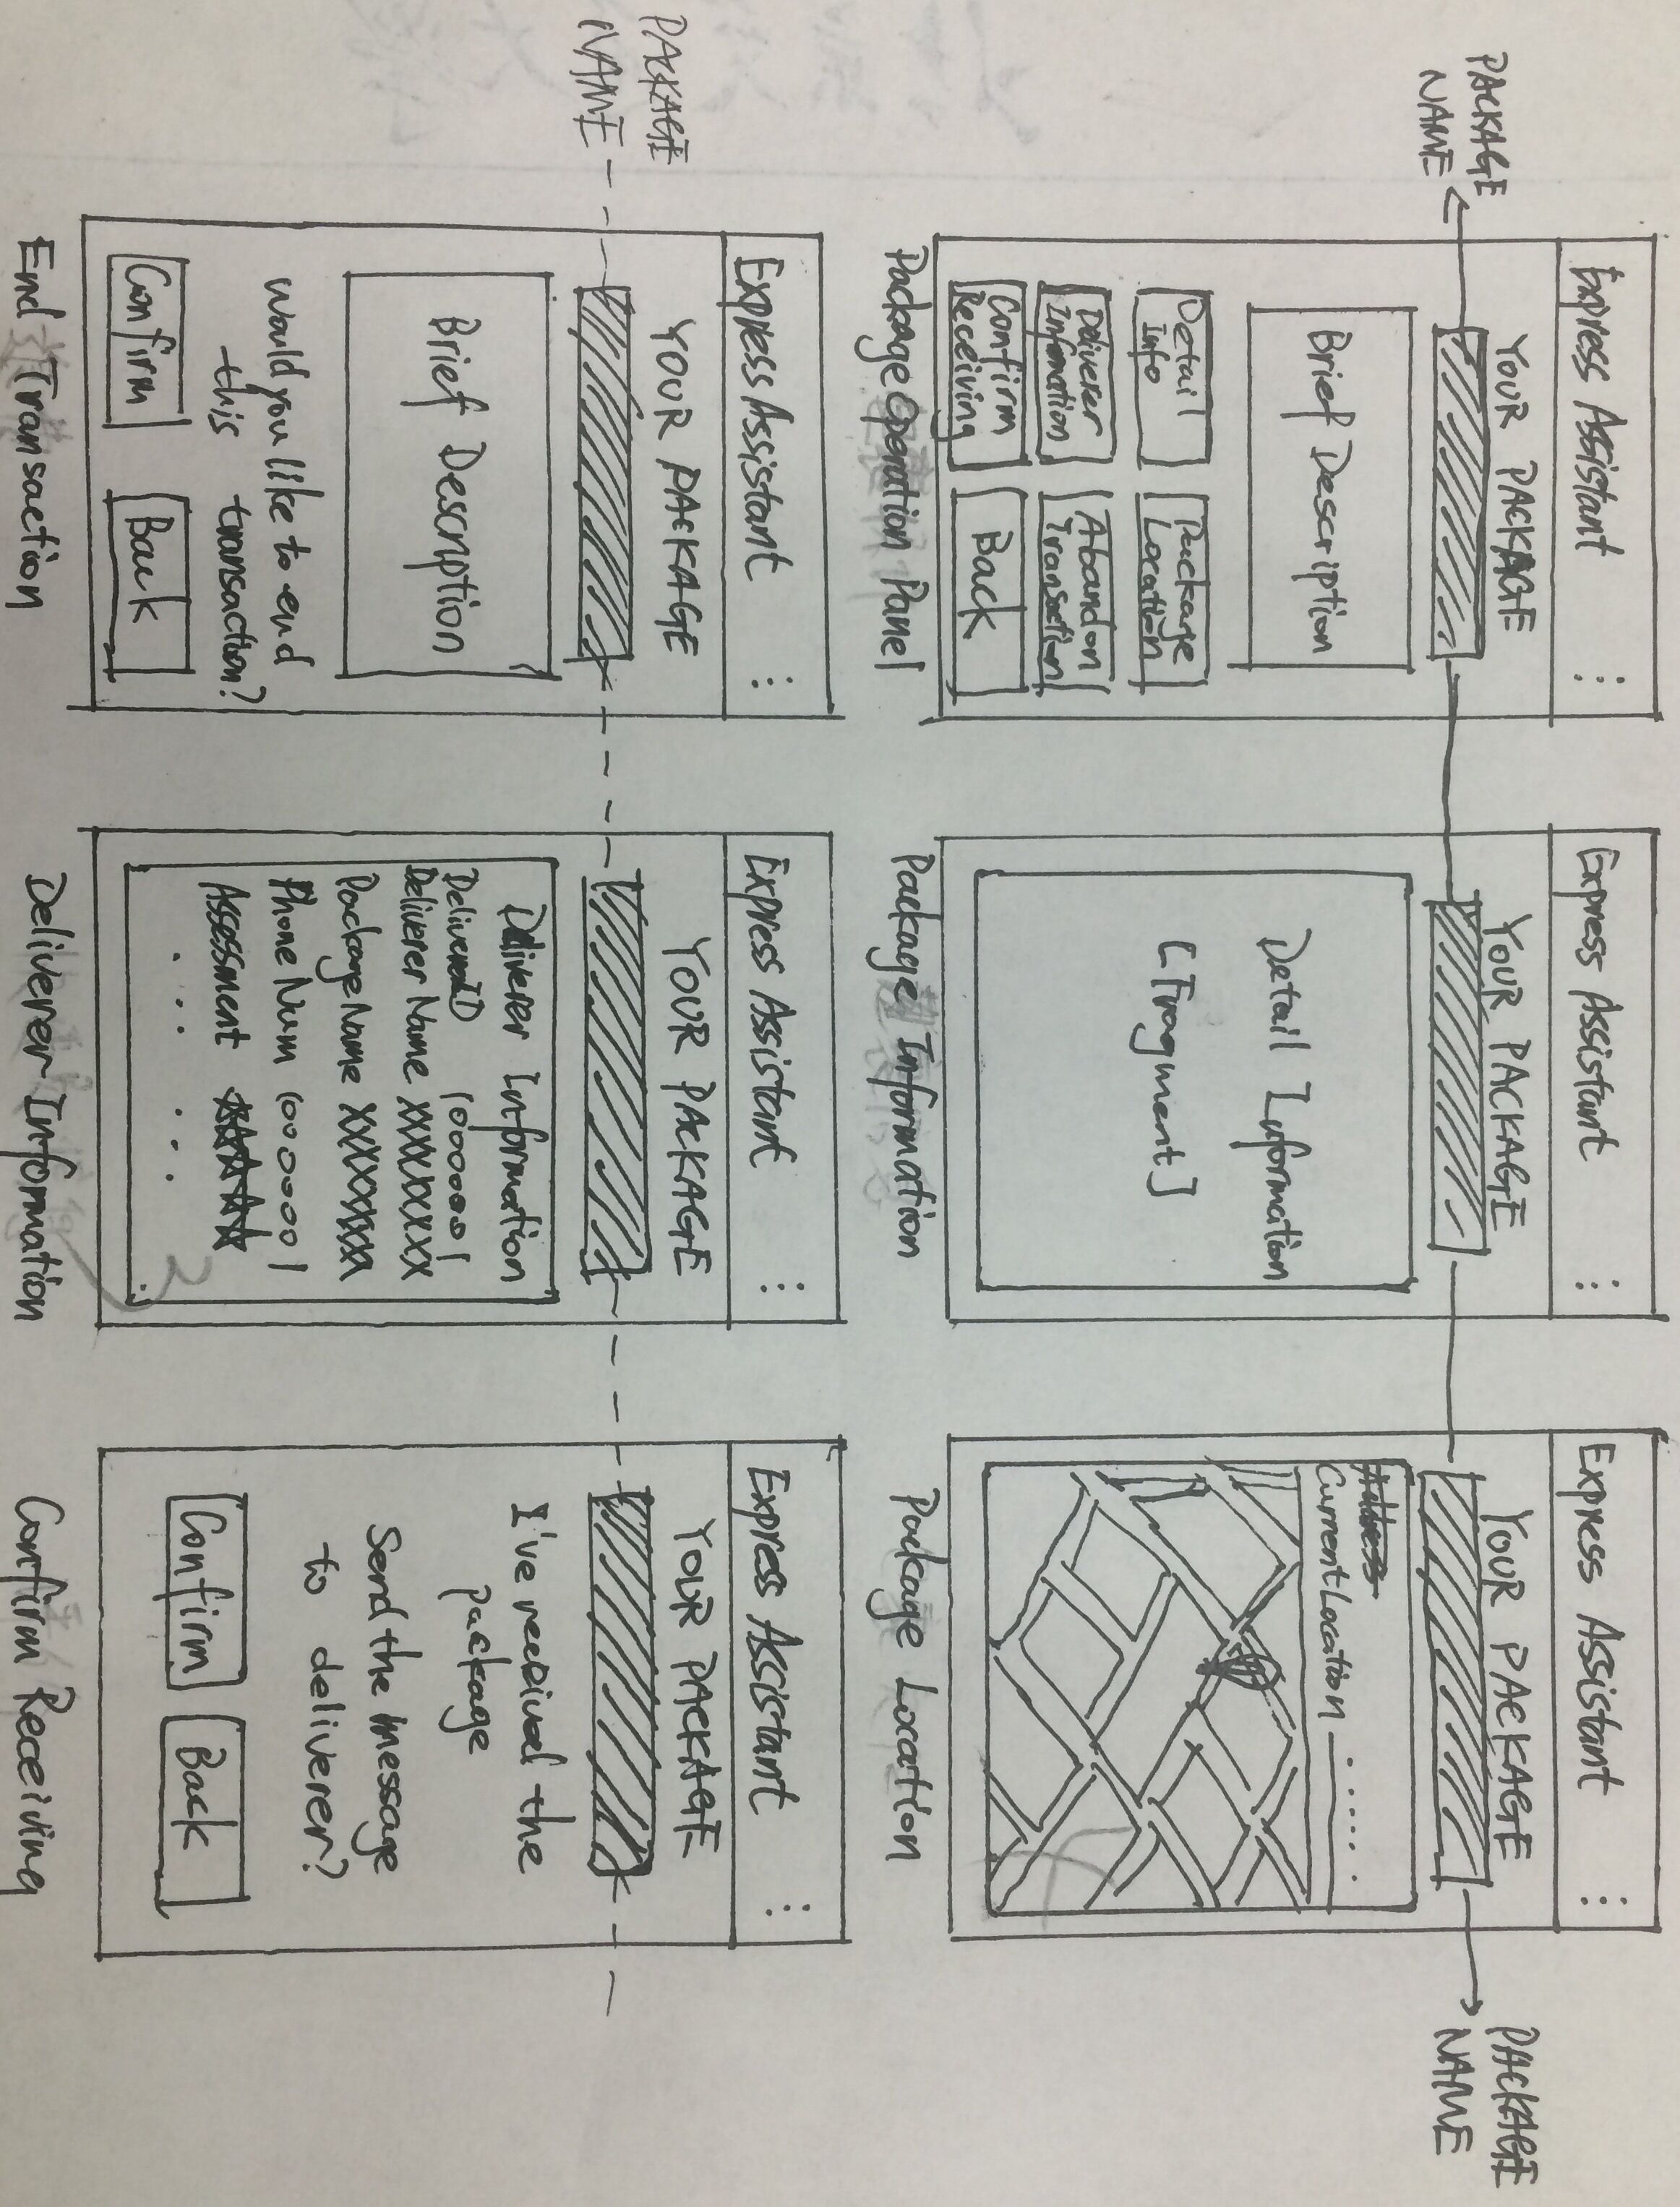 PACKAGE
NAME
Express Assistant
YOUR PACKAGE
Brief Description
Detail
Info
Package
Location
Deliver
Infomation
Abandon
Transaction
Confirm
Receiving
Back
Package Operation Panel
Express Assistant
YOUR PACKAGE
Detail Information
[Fragment]
Package Information
Express Assistant
YOUR PACKAGE
Address
Current Location
Package Location
PACKAGE
NAME
PACKAGE
NAME
Express Assistant
YOUR PACKAGE
Brief Description
Would you like to end
this transaction?
Confirm
Back
End Transaction
Express Assistant
YOUR PACKAGE
Deliverer Information
Deliverer ID 1000001
Deliverer Name XXXXXXXX
Package Name XXXXXXX
Phone Num 10000001
Assessment ☆☆☆☆☆
Deliverer Infomation
Express Assistant
YOUR PACKAGE
I've received the
package
Send the message
to deliverer?
Confirm
Back
Confirm Receiving